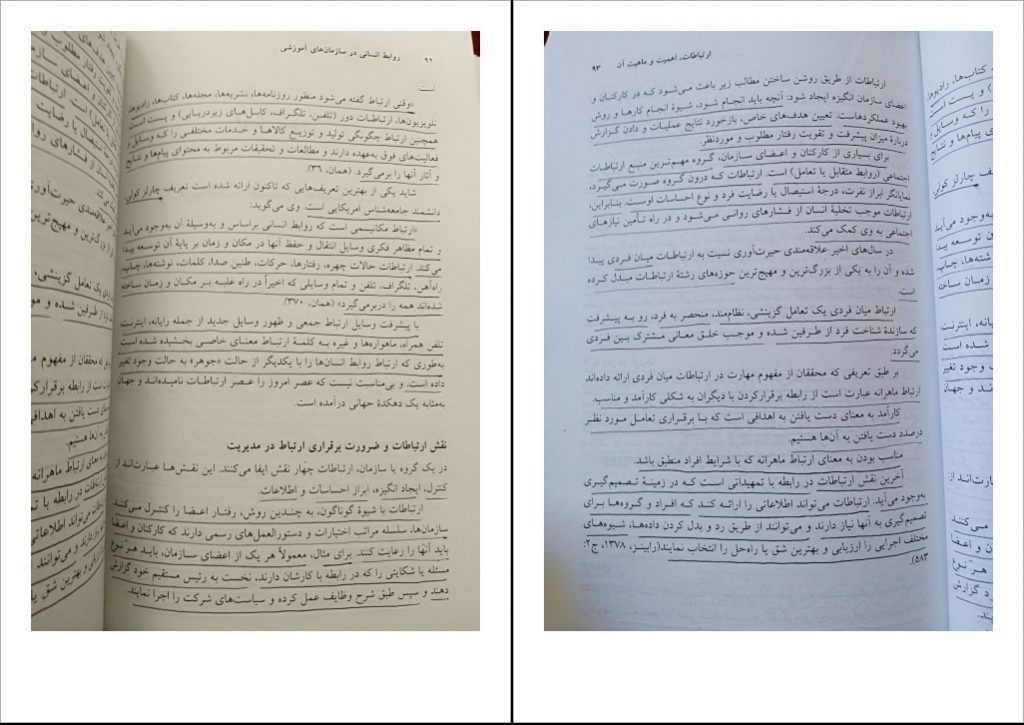 ۹۲ روابط انسانی در سازمان‌های آموزشی
است.
«وقتی ارتباط گفته می‌شود منظور روزنامه‌ها، نشریه‌ها، مجله‌ها، کتاب‌ها، رادیوها،
تلویزیون‌ها، ارتباطات دور (تلفن، تلگراف، کابل‌های زیردریایی) و پست است
همچنین ارتباط چگونگی تولید و توزیع کالاها و خدمات مختلفی را که وسایل و
فعالیت‌های فوق به‌عهده دارند و مطالعات و تحقیقات مربوط به محتوای پیام‌ها و نتایج
و آثار آنها را برمی‌گیرد. (همان، ۳۶).
شاید یکی از بهترین تعریف‌هایی که تاکنون ارائه شده است تعریف چارلز کولی،
دانشمند جامعه‌شناس امریکایی است. وی می‌گوید:
«ارتباط مکانیسمی است که روابط انسانی براساس و به‌وسیلهٔ آن به‌وجود می‌آید
و تمام مظاهر فکری وسایل انتقال و حفظ آنها در مکان و زمان بر پایهٔ آن توسعه پیدا
می‌کند. ارتباطات حالات چهره، رفتارها، حرکات، طنین صدا، کلمات، نوشته‌ها، چاپ،
راه‌آهن، تلگراف، تلفن و تمام وسایلی که اخیراً در راه غلبه بر مکان و زمان ساخته
شده‌اند همه را دربرمی‌گیرد» (همان، ۳۷۰).
با پیشرفت وسایل ارتباط جمعی و ظهور وسایل جدید از جمله رایانه، اینترنت،
تلفن همراه، ماهواره‌ها و غیره به کلمهٔ ارتباط معنای خاصی بخشیده شده است
به‌طوری که ارتباط روابط انسان‌ها را با یکدیگر از حالت «جوهر» به حالت وجود تغییر
داده است. و بی‌مناسبت نیست که عصر امروز را عصر ارتباطات نامیده‌اند و جهان
به‌مثابه یک دهکدهٔ جهانی درآمده است.
نقش ارتباطات و ضرورت برقراری ارتباط در مدیریت
در یک گروه یا سازمان، ارتباطات چهار نقش ایفا می‌کنند. این نقش‌ها عبارت‌اند از:
کنترل، ایجاد انگیزه، ابراز احساسات و اطلاعات.
ارتباطات با شیوهٔ گوناگون، به چندین روش، رفتار اعضا را کنترل می‌کنند
سازمان‌ها، سلسله مراتب اختیارات و دستورالعمل‌های رسمی دارند که کارکنان و اعضا
باید آنها را رعایت کنند. برای مثال، معمولاً هر یک از اعضای سازمان، باید هر نوع
مسئله یا شکایتی را که در رابطه با کارشان دارند، نخست به رئیس مستقیم خود گزارش
دهند و سپس طبق شرح وظایف عمل کرده و سیاست‌های شرکت را اجرا نمایند.
ارتباطات، اهمیت و ماهیت آن ۹۳
ارتباطات از طریق روشن ساختن مطالب زیر باعث می‌شود که در کارکنان و
اعضای سازمان انگیزه ایجاد شود: آنچه باید انجام شود، شیوهٔ انجام کارها و روش
بهبود عملکردهاست. تعیین هدف‌های خاص، بازخورد نتایج عملیات و دادن گزارش
دربارهٔ میزان پیشرفت و تقویت رفتار مطلوب و موردنظر.
برای بسیاری از کارکنان و اعضای سازمان، گروه مهم‌ترین منبع ارتباطات
اجتماعی (روابط متقابل یا تعامل) است. ارتباطات که درون گروه صورت می‌گیرد،
نمایانگر ابراز نفرت، درجهٔ استیصال یا رضایت فرد و نوع احساسات اوست. بنابراین،
ارتباطات موجب تخلیهٔ انسان از فشارهای روانی می‌شود و در راه تأمین نیازهای
اجتماعی به وی کمک می‌کند.
در سال‌های اخیر علاقه‌مندی حیرت‌آوری نسبت به ارتباطات میان فردی پیدا
شده و آن را به یکی از بزرگ‌ترین و مهیج‌ترین حوزه‌های رشتهٔ ارتباطات مبدل کرده
است.
ارتباط میان فردی یک تعامل گزینشی، نظام‌مند، منحصر به فرد، رو به پیشرفت
که سازندهٔ شناخت فرد از طرفین شده و موجب خلق معانی مشترک بین فردی
می‌گردد.
بر طبق تعریفی که محققان از مفهوم مهارت در ارتباطات میان فردی ارائه داده‌اند
ارتباط ماهرانه عبارت است از رابطه برقرارکردن با دیگران به شکلی کارآمد و مناسب.
کارآمد به معنای دست یافتن به اهدافی است که با برقراری تعامل مورد نظر
درصدد دست یافتن به آن‌ها هستیم.
مناسب بودن به معنای ارتباط ماهرانه که با شرایط افراد منطبق باشد.
آخرین نقش ارتباطات در رابطه با تمهیداتی است که در زمینهٔ تصمیم‌گیری
به‌وجود می‌آید. ارتباطات می‌تواند اطلاعاتی را ارائه کند که افراد و گروه‌ها برای
تصمیم‌گیری به آنها نیاز دارند و می‌توانند از طریق رد و بدل کردن داده‌ها، شیوه‌های
مختلف اجرایی را ارزیابی و بهترین شق یا راه‌حل را انتخاب نمایند(رابینز، ۱۳۷۸، ج۲:
۵۸۳).